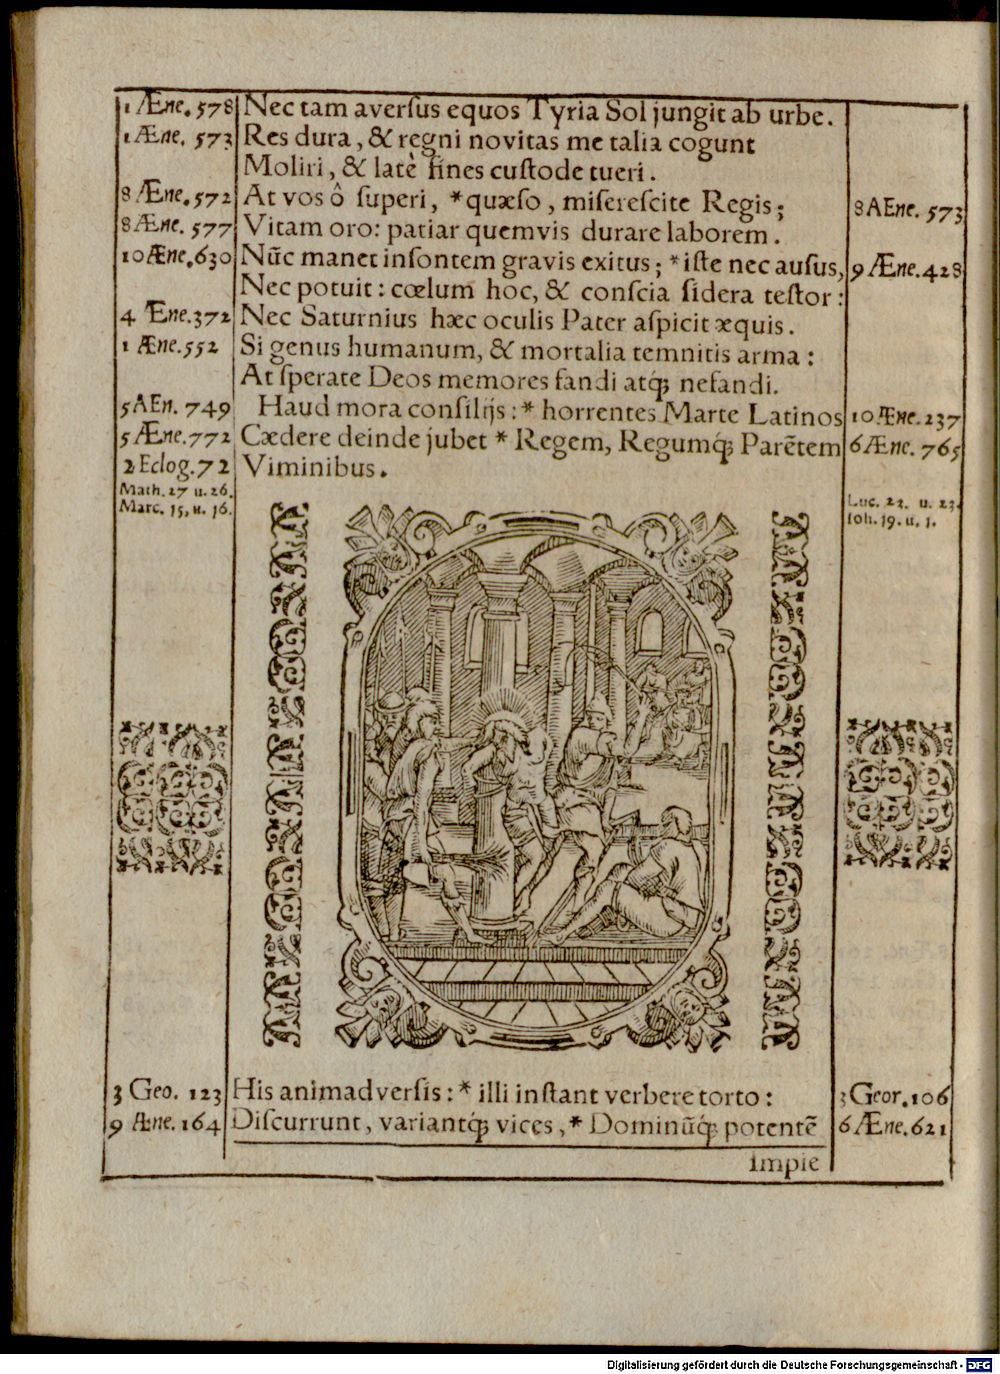 1 Æne. 578 Nec tam aversus equos Tyria Sol jungit ab urbe.
1 Æne. 573 Res dura, & regni novitas me talia cogunt
Moliri, & latè fines custode tueri.
8 Æne. 572 At vos ô superi, * quæso, miserescite Regis; 8 AEne. 573
8 Æne. 577 Vitam oro: patiar quemvis durare laborem.
10 Æne. 630 Nũc manet insontem gravis exitus; * iste nec ausus, 9 Æne. 428
Nec potuit: cœlum hoc, & conscia sidera testor:
4 Æne. 372 Nec Saturnius hæc oculis Pater aspicit æquis.
1 Æne. 552 Si genus humanum, & mortalia temnitis arma:
At sperate Deos memores fandi atq́; nefandi.
5 AEn. 749 Haud mora consilijs: * horrentes Marte Latinos 10 Æne. 237
5 Æne. 772 Cædere deinde jubet * Regem, Regumq́; Parẽtem 6 Æne. 765
2 Eclog. 72 Viminibus.
Math. 27 u. 26. Luc. 22. u. 23.
Marc. 15, u. 16. Ioh. 19. u. 1.
3 Geo. 123 His animadversis: * illi instant verbere torto: 3 Geor. 106
9 Æne. 164 Discurrunt, variantq́; vices, * Dominũq́; potentẽ 6 Æne. 621
impie
Digitalisierung gefördert durch die Deutsche Forschungsgemeinschaft - DFG